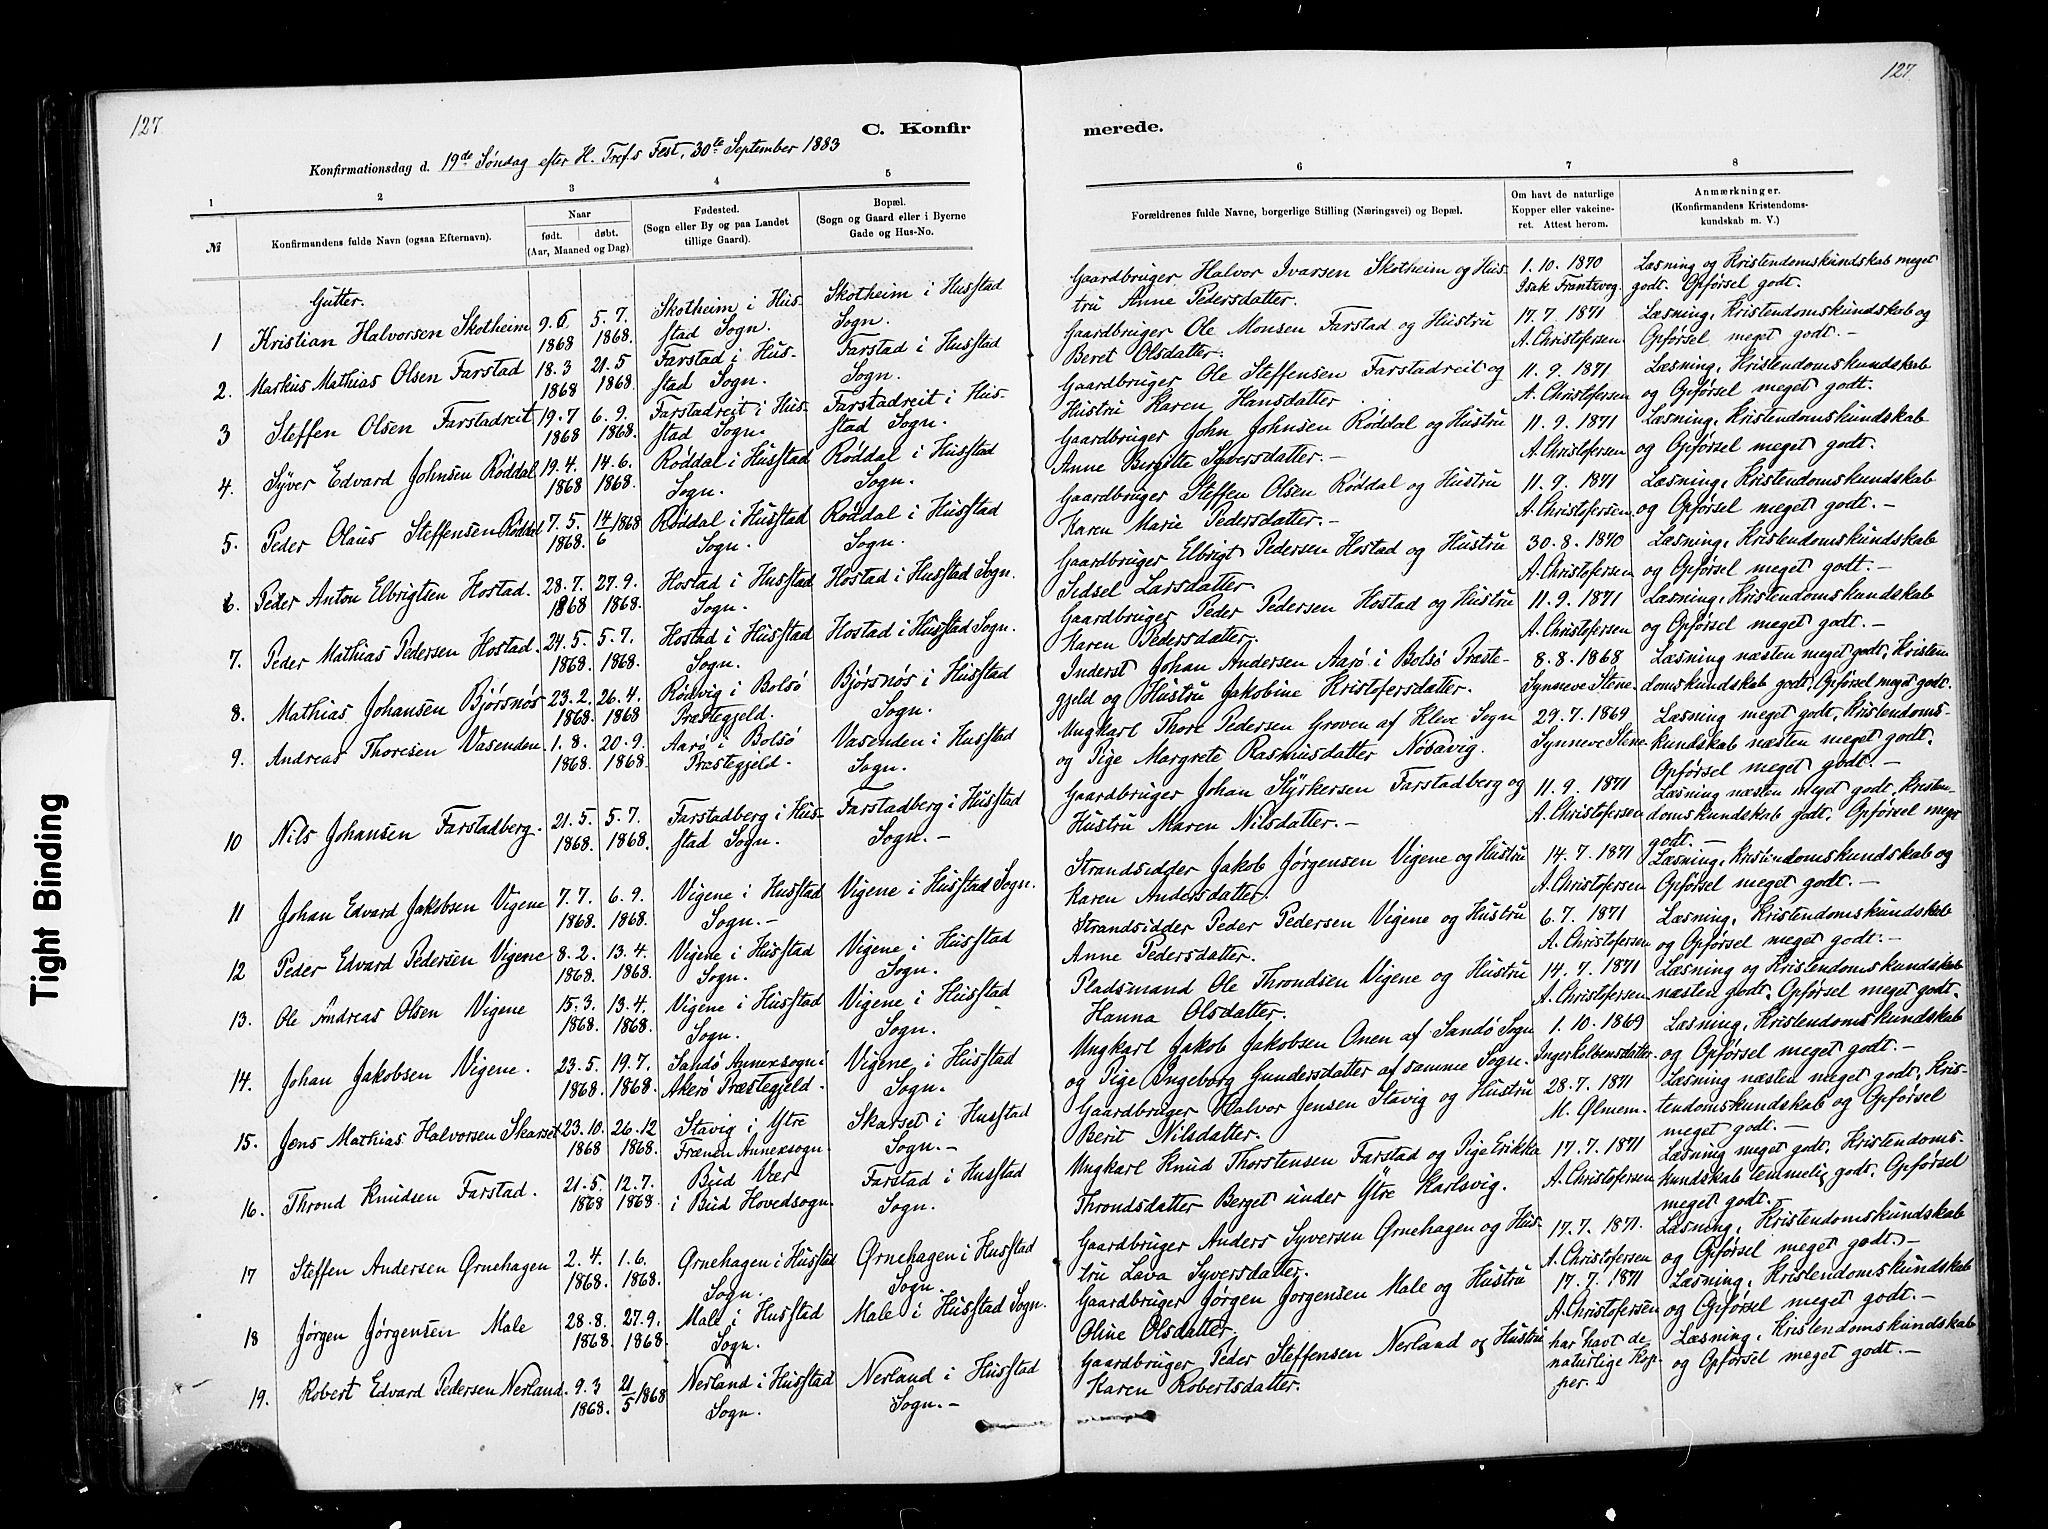 127
127
C. Konfir
merede.
Konfirmationsdag d. 19de Søndag efter H. Tref.s Fest, 30te September 1883
1
2
3
4
5
6
7
8
№
Konfirmandens fulde Navn (ogsaa Efternavn).
Naar
født. døbt.
(Aar, Maaned og Dag)
Fødested.
(Sogn eller By og paa Landet
tillige Gaard).
Bopæl.
(Sogn og Gaard eller i Byerne
Gade og Hus-No.
Forældrenes fulde Navne, borgerlige Stilling (Næringsvei) og Bopæl.
Om havt de naturlige
Kopper eller vakcine-
ret. Attest herom.
Anmærkninger.
(Konfirmandens Kristendoms-
kundskab m. V.)
Gutter.
1 Kristian Halvorsen Skotheim 9.6 1868 5.7. 1868. Skotheim i Hus-
stad Sogn. Skotheim i Husstad
Sogn. Gaardbruger Halvor Ivarsen Skotheim og Hus-
tru Anne Pedersdatter. 1.10. 1870
Isak Frantsvog. Læsning og Kristendomskundskab meget
godt. Opførsel godt.
2. Markus Mathias Olsen Farstad 18.3 1868 21.5 1868. Farstad i Hus-
stad Sogn. Farstad i Husstad
Sogn. Gaardbruger Ole Monsen Farstad og Hustru
Beret Olsdatter. 17.7 1871
A. Christofersen Læsning, Kristendomskundskab og
Opførsel meget godt. –
3 Steffen Olsen Farstadreit 19.7 1868 6.9. 1868. Farstadreit i Hus-
stad Sogn. Farstadreit i Hus-
stad Sogn. Gaardbruger Ole Steffensen Farstadreit og
Hustru Karen Hansdatter 11.9 1871
A. Christofersen Læsning, Kristendomskundskab
og Opførsel meget godt.
4. Syver Edvard Johnsen Røddal 19.4. 1868 14.6. 1868. Røddal i Husstad
Sogn. Røddal i Husstad
Sogn. Gaardbruger John Johnsen Røddal og Hustru
Anne Bergitte Syversdatter. – 11.9. 1871
A. Christofersen Læsning, Kristendomskundskab
og Opførsel meget godt.
5. Peder Olaus Steffensen Røddal 7.5. 1868. 14/6 1868 Røddal i Husstad
Sogn. Røddal i Husstad
Sogn. Gaardbruger Steffen Olsen Røddal og Hustru
Karen Marie Pedersdatter. – 11.9. 1871
A. Christofersen. Læsning, Kristendomskundskab
og Opførsel meget godt. –
6. Peder Anton Elbrigtsen Hostad. 28.7. 1868 27.9. 1868. Hostad i Husstad
Sogn. Hostad i Husstad Sogn. Gaardbruger Elbrigt Pedersen Hostad og Hustru
Sedsel Larsdatter 30.8. 1870
A. Christofersen Læsning, Kristendomskundskab
og Opførsel meget godt. –
7. Peder Mathias Pedersen Hostad. 24.5. 1868. 5.7. 1868. Hostad i Husstad
Sogn. Hostad i Husstad Sogn. Gaardbruger Peder Pedersen Hostad og Hustru
Karen Pedersdatter. 11.9. 1871
A. Christofersen Læsning, Kristendomskundskab
og Opførsel meget godt. –
8. Mathias Johansen Bjørsnøs 23.2. 1868. 26.4. 1868 Rødvig i Bolsø
Præstegjeld. Bjørsnøs i Husstad
Sogn. Inderst Johan Andersen Aarø i Bolsø Præste-
gjeld og Hustru Jakobine Kristofersdatter. 8.8. 1868
Synneve Stene Læsning næsten meget godt, Kristen
domskundskab godt, Opførsel meget godt.
9. Andreas Thoresen Vasenden 1.8. 1868. 20.9. 1868. Aarø i Bolsø
Præstegjeld. Vasenden i Husstad
Sogn. Ungkarl Thore Pedersen Groven af Kleve Sogn
og Pige Margrete Rasmusdatter Nosavig. 29.7. 1869
Synneve Stene Læsning meget godt, Kristendoms-
kundskab næsten meget godt.
Opførsel meget godt. –
10 Nils Johansen Farstadberg. 21.5. 1868. 5.7. 1868. Farstadberg i Hus-
stad Sogn. Farstadberg i Husstad
Sogn. – Gaardbruger Johan Styrkersen Farstadberg og
Hustru Maren Nilsdatter. – 11.9. 1871
A. Christofersen Læsning næsten meget godt, Kristen-
domskundskab godt, Opførsel meget
godt. –
11 Johan Edvard Jakobsen Vigene 7.7. 1868. 6.9. 1868. Vigene i Husstad
Sogn. – Vigene i Husstad Sogn. Strandsidder Jakob Jørgensen Vigene og Hustru
Karen Andersdatter. 14.7. 1871
A. Christofersen Læsning, Kristendomskundskab og
Opførsel meget godt. –
12 Peder Edvard Pedersen Vigene 8.2. 1868. 13.4. 1868. Vigene i Husstad
Sogn. Vigene i Husstad
Sogn. Strandsidder Peder Pedersen Vigene og Hustru
Anne Pedersdatter. 6.7. 1871
A. Christofersen Læsning, Kristendomskundskab
og Opførsel meget godt. –
13. Ole Andreas Olsen Vigene 15.3. 1868. 13.4. 1868. Vigene i Husstad
Sogn. Vigene i Husstad
Sogn. Pladsmand Ole Throndsen Vigene og Hustru
Hanna Olsdatter. 14.7. 1871
A. Christofersen Læsning og Kristendomskundskab
næsten godt, Opførsel meget godt.
14. Johan Jakobsen Vigene. 23.5. 1868. 19.7. 1868. Sandø Annexsogn i
Akerø Præstegjeld. Vigene i Husstad
Sogn. Ungkarl Jakob Jakobsen Onen af Sandø Sogn
og Pige Ingeborg Gundersdatter af samme Sogn. 1.10. 1869
Inger Kolbensdatter Læsning, Kristendomskundskab
og Opførsel meget godt. –
15. Jens Mathias Halvorsen Skarset 23.10. 1868 26.12 1868. Stavig i Ytre
Frænen Annexsogn. Skarset i Husstad
Sogn. – Gaardbruger Halvor Jensen Stavig og Hustru
Berit Nilsdatter. 28.7. 1871
M. Gjmem. Læsning næsten meget godt, Kris-
tendomskundskab og Opførsel
meget godt. –
16. Thrond Knudsen Farstad. 21.5. 1868 12.7. 1868. Bud Vær
i Bud Hovedsogn. Farstad i Husstad
Sogn. Ungkarl Knud Thorstensen Farstad og Pige Erikka
Throndsdatter Berget under Ytre Karlsvig. 17.7. 1871
A. Christofersen Læsning meget godt, Kristendoms-
kundskab temmelig godt, Opførsel
meget godt.
17 Steffen Andersen Ørnehagen 2.4. 1868. 1.6. 1868. Ørnehagen i Husstad
Sogn. Ørnehagen i Husstad
Sogn. Gaardbruger Anders Syversen Ørnehagen og Hus-
tru Lava Syversdatter. 17.7. 1871.
A. Christofersen Læsning, Kristendomskundskab
og Opførsel meget godt. –
18 Jørgen Jørgensen Male 28.8. 1868. 27.9. 1868. Male i Husstad
Sogn. Male i Husstad Sogn. Gaardbruger Jørgen Jørgensen Male og Hustru
Oline Olsdatter. 17.7. 1871
A. Christofersen Læsning, Kristendomskundskab
og Opførsel meget godt. –
19. Robert Edvard Pedersen Nerland. 9.3 1868. 21/5 1868 Nerland i Husstad
Sogn. Nerland i Husstad
Sogn. – Gaardbruger Peder Steffensen Nerland og Hustru
Karen Robertsdatter. har havt de
naturlige Kop-
per. Læsning, Kristendomskundskab
og Opførsel meget godt. –
Tight Binding